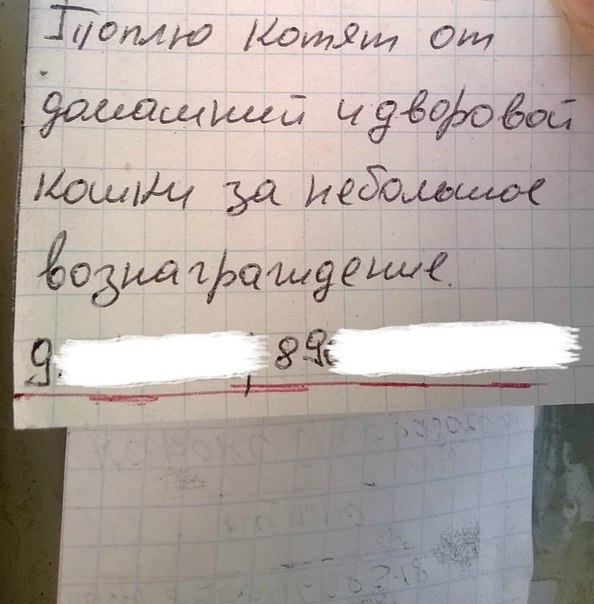 Топлю котят от
домашний и дворовой
кошки за небольшое
вознаграждение.
9 , 89